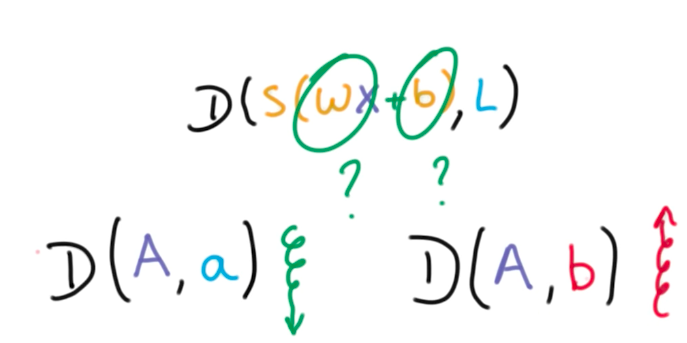 D(S(WX+b),L)
? ?
D(A,a) D(A,b)